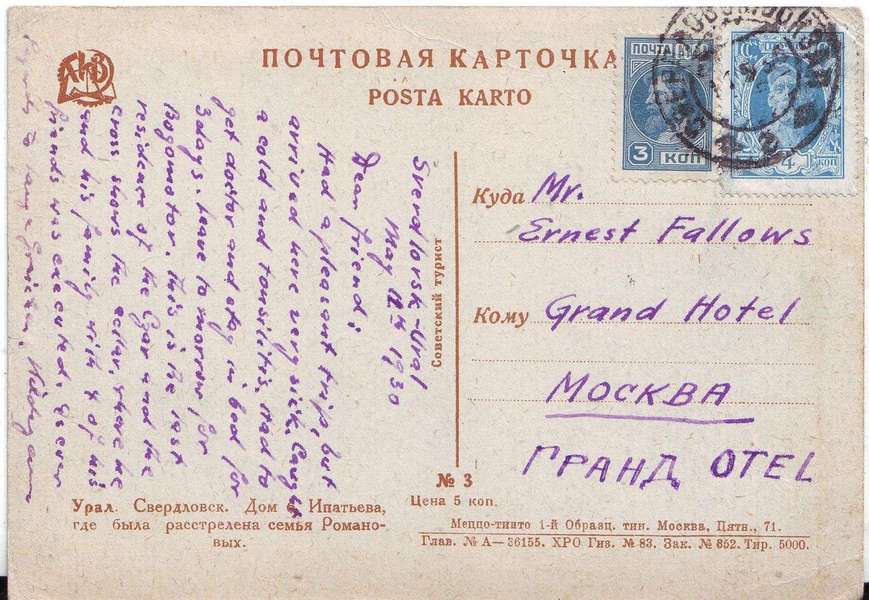 ПОЧТОВАЯ КАРТОЧКА
POSTA KARTO
ПОЧТА
3 КОП
4 КОП
Куда Mr.
Ernest Fallows
Кому Grand Hotel
МОСКВА
ГРАНД OTEL
Sverdlovsk-Ural
May 12th 1930
Dear friend:
Had a pleasant trip, but
arrived here very sick. Caught
a cold and tonsilitis. Had to
get doctor and stay in bed for
3 days. Leave to morrow for
This is the last
residence of the Czar and the
cross shows the cellar, where he
and his family with 4 of his
friends was executed. As ever
Советский турист
№ 3
Цена 5 коп.
Урал. Свердловск. Дом б. Ипатьева,
где была расстрелена семья Романо-
вых.
Меццо-тинто 1-й Образц. тип. Москва, Пятн., 71.
Глав. № А—36155. ХРО Гиз. № 83. Зак. № 852. Тир. 5000.